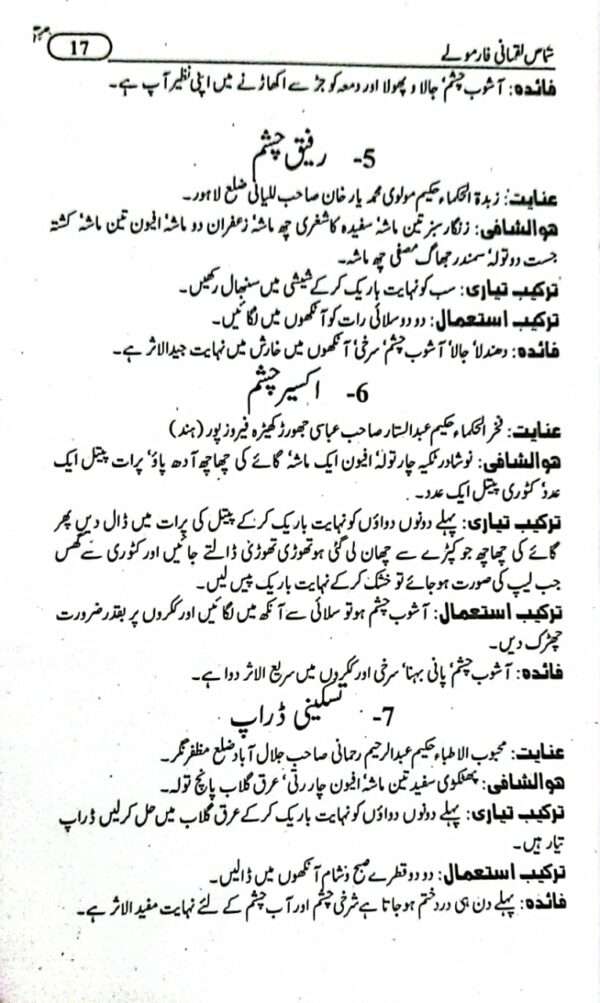 شماس لقمانی فارمولے 17
فائدہ: آشوب چشم، جالا و پھولا اور دمعہ کو جڑ سے اکھاڑنے میں اپنی نظیر آپ ہے۔
5- رفیق چشم
عنایت: زبدۃ الحکماء حکیم مولوی محمد یار خان صاحب للیانی ضلع لاہور۔
ھوالشافی: زنگار سبز تین ماشہ، سفیدہ کاشغری چھ ماشہ، زعفران دو ماشہ، افیون تین ماشہ، کشتہ
جست دو تولہ، سمندر جھاگ مصفی چھ ماشہ۔
ترکیب تیاری: سب کو نہایت باریک کر کے شیشی میں سنبھال رکھیں۔
ترکیب استعمال: دو دو سلائی رات کو آنکھوں میں لگائیں۔
فائدہ: دھندلا، جالا، آشوب چشم، سرخی، آنکھوں میں خارش میں نہایت جید الاثر ہے۔
6- اکسیر چشم
عنایت: فخر الحکماء حکیم عبدالستار صاحب عباسی جھورڑ کھیڑہ فیروز پور (ہند)
ھوالشافی: نوشادر ٹکیہ چار تولہ، افیون ایک ماشہ، گائے کی چھاچھ آدھ پاؤ، پرات پیتل ایک
عدد، کٹوری پیتل ایک عدد۔
ترکیب تیاری: پہلے دونوں دواؤں کو نہایت باریک کر کے پیتل کی پرات میں ڈال دیں پھر
گائے کی چھاچھ جو کپڑے سے چھان لی گئی ہو تھوڑی تھوڑی ڈالتے جائیں اور کٹوری سے گھس
جب لیپ کی صورت ہو جائے تو خشک کر کے نہایت باریک پیس لیں۔
ترکیب استعمال: آشوب چشم ہو تو سلائی سے آنکھ میں لگائیں اور ککروں پر بقدر ضرورت
چھڑک دیں۔
فائدہ: آشوب چشم، پانی بہنا، سرخی اور ککروں میں سریع الاثر دوا ہے۔
7- تسکینی ڈراپ
عنایت: محبوب الاطباء حکیم عبدالرحیم رحمانی صاحب جلال آباد ضلع مظفر نگر۔
ھوالشافی: پھٹکڑی سفید تین ماشہ، افیون چار رتی، عرق گلاب پانچ تولہ۔
ترکیب تیاری: پہلے دونوں دواؤں کو نہایت باریک کر کے عرق گلاب میں حل کر لیں ڈراپ
تیار ہیں۔
ترکیب استعمال: دو دو قطرے صبح و شام آنکھوں میں ڈالیں۔
فائدہ: پہلے دن ہی درد ختم ہو جاتا ہے سُرخی چشم اور آب چشم کے لئے نہایت مفید الاثر ہے۔